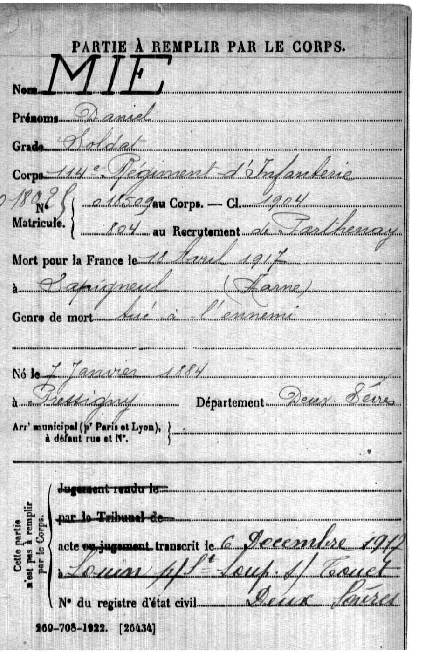 PARTIE À REMPLIR PAR LE CORPS.
Nom MIE
Prénoms Daniel
Grade Soldat
Corps 114e Régiment d'Infanterie
N° 018509 au Corps. — Cl. 1904
Matricule. 804 au Recrutement de Parthenay
Mort pour la France le 18 Avril 1917
à Sapigneul (Marne)
Genre de mort tué à l'ennemi
Né le 7 Janvier 1884
à Pressigny Département Deux Sèvres
Arrt municipal (pr Paris et Lyon),
à défaut rue et N°.
Cette partie
n'est pas à remplir
par le Corps.
Jugement rendu le
par le Tribunal de
acte ou jugement transcrit le 6 Décembre 1917
à Louin p/ St Loup s/ Thouet
N° du registre d'état civil Deux Sèvres
269-708-1922. [26434]